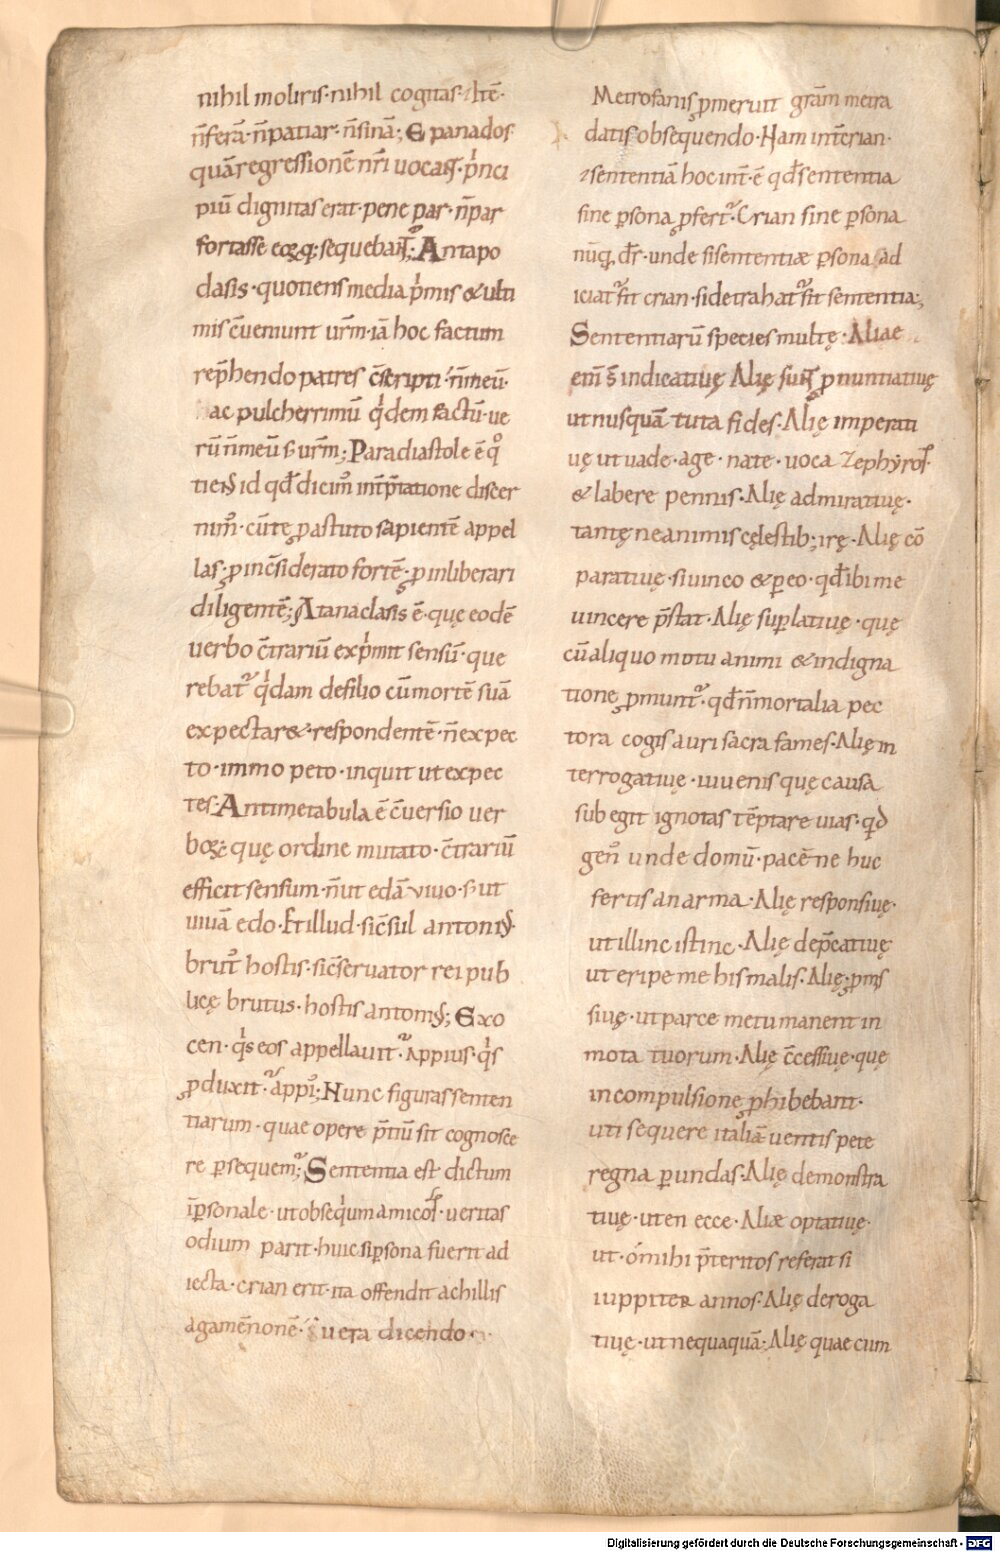 nihil moliris· nihil cogitas· Itē·
n̄ferā· n̄patiar· n̄sinā; Epanados
quā regressionē nr̄i uocant· p̍nci
piū dignitas erat· pene par· n̄par
fortasse eoꝝq; sequebat᷑; Antapo
dasis· quotiens media p̍mis & ulti
mis c̄ueniunt ur̄m· iā hoc factum
rep̄hendo patres c̄scripti· n̄meū·
ac pulcherrimū q̍dem factū· ue
rū n̄meū s· ur̄m; Paradiastole ē q°
tiens id qđ dicim᷒ int̄p̄tatione discer
nim᷒· cū te ꝓ astuto sapientē appel
las· ꝓ inc̄siderato fortē· ꝓ inliberari
diligentē; Atanaclasis ē· quę eodē
uerbo c̄trariū exp̍mit sensū· que
rebat᷑ q̍dam de filio cū mortē suā
expectar&· respondentē· n̄expec
to· immo peto· inquit ut expec
tes· Antimetabula ē c̄uersio uer
boꝝ quę ordine mutato· c̄trariū
efficit sensum· n̄ut edā uiuo· s· ut
uiuā edo· Et illud· sic̄sul antoni᷒·
brut᷒ hostis· sic̄seruator rei pub
licę brutus· hostis antoni᷒; Exo
cen· q̍s eos appellauit· appius· q̍s
ꝓduxit· appi᷒; Nunc figuras senten
tiarum· quae opere p̄tiū sit cognosce
re ꝑsequem᷑; Sententia est dictum
īꝑsonale· ut obseq̍um amicos· ueritas
odium parit· huic si ꝑsona fuerit ad
iecta· crian erit· ita offendit achillis
agamēnonē· uera dicendo·
Metrofanis ꝓmeruit gr̄am metra
datis obsequendo· Nam int̄ crian·
⁊ sententiā hoc int̄· ē qđ sententia
sine ꝑsona ꝓfert᷑· Crian sine ꝑsona
nūq̄ dr̄· unde si sententiæ ꝑsona ad
iciat᷑ fit crian· si detrahat᷑ fit sententia;
Sententiarū species multę· Aliae
eni s̄ indicatiuę Alię sunt ꝓnuntiatiuę
ut nusquā tuta fides· Alię imperati
uę ut uade· age· nate· uoca Zephyros·
& labere pennis· Alię admiratiuę·
tantę ne animis cęlestib; irę· Alię cō
paratiuę· si uinco & ꝑeo· qđ ibi me
uincere p̄stat· Alię suꝑlatiuę· quę
cū aliquo motu animi & indigna
tione ꝓmunt᷑· qđ n̄ mortalia pec
tora cogis auri sacra fames· Alię in
terrogatiuę· iuuenis quę causa
subegit ignotas tēptare uias· qđ
gen᷒ unde domū· pacē ne huc
fertis an arma· Alię responsiuę·
ut illinc istinc· Alię dep̄catiuę
ut eripe me his malis· Alię ꝓmis
siuę· ut parce metu manent in
mota tuorum· Alię c̄cessiuę· quę
in compulsione ꝓhibebant·
uti sequere italiā uentis pete
regna ꝑ undas· Alię demonstra
tiuę· ut en ecce· Aliæ optatiuę·
ut· ó mihi p̄teritos referat si
iuppiter annos· Alię deroga
tiuę· ut nequaquā· Alię quae cum
Digitalisierung gefördert durch die Deutsche Forschungsgemeinschaft - DFG